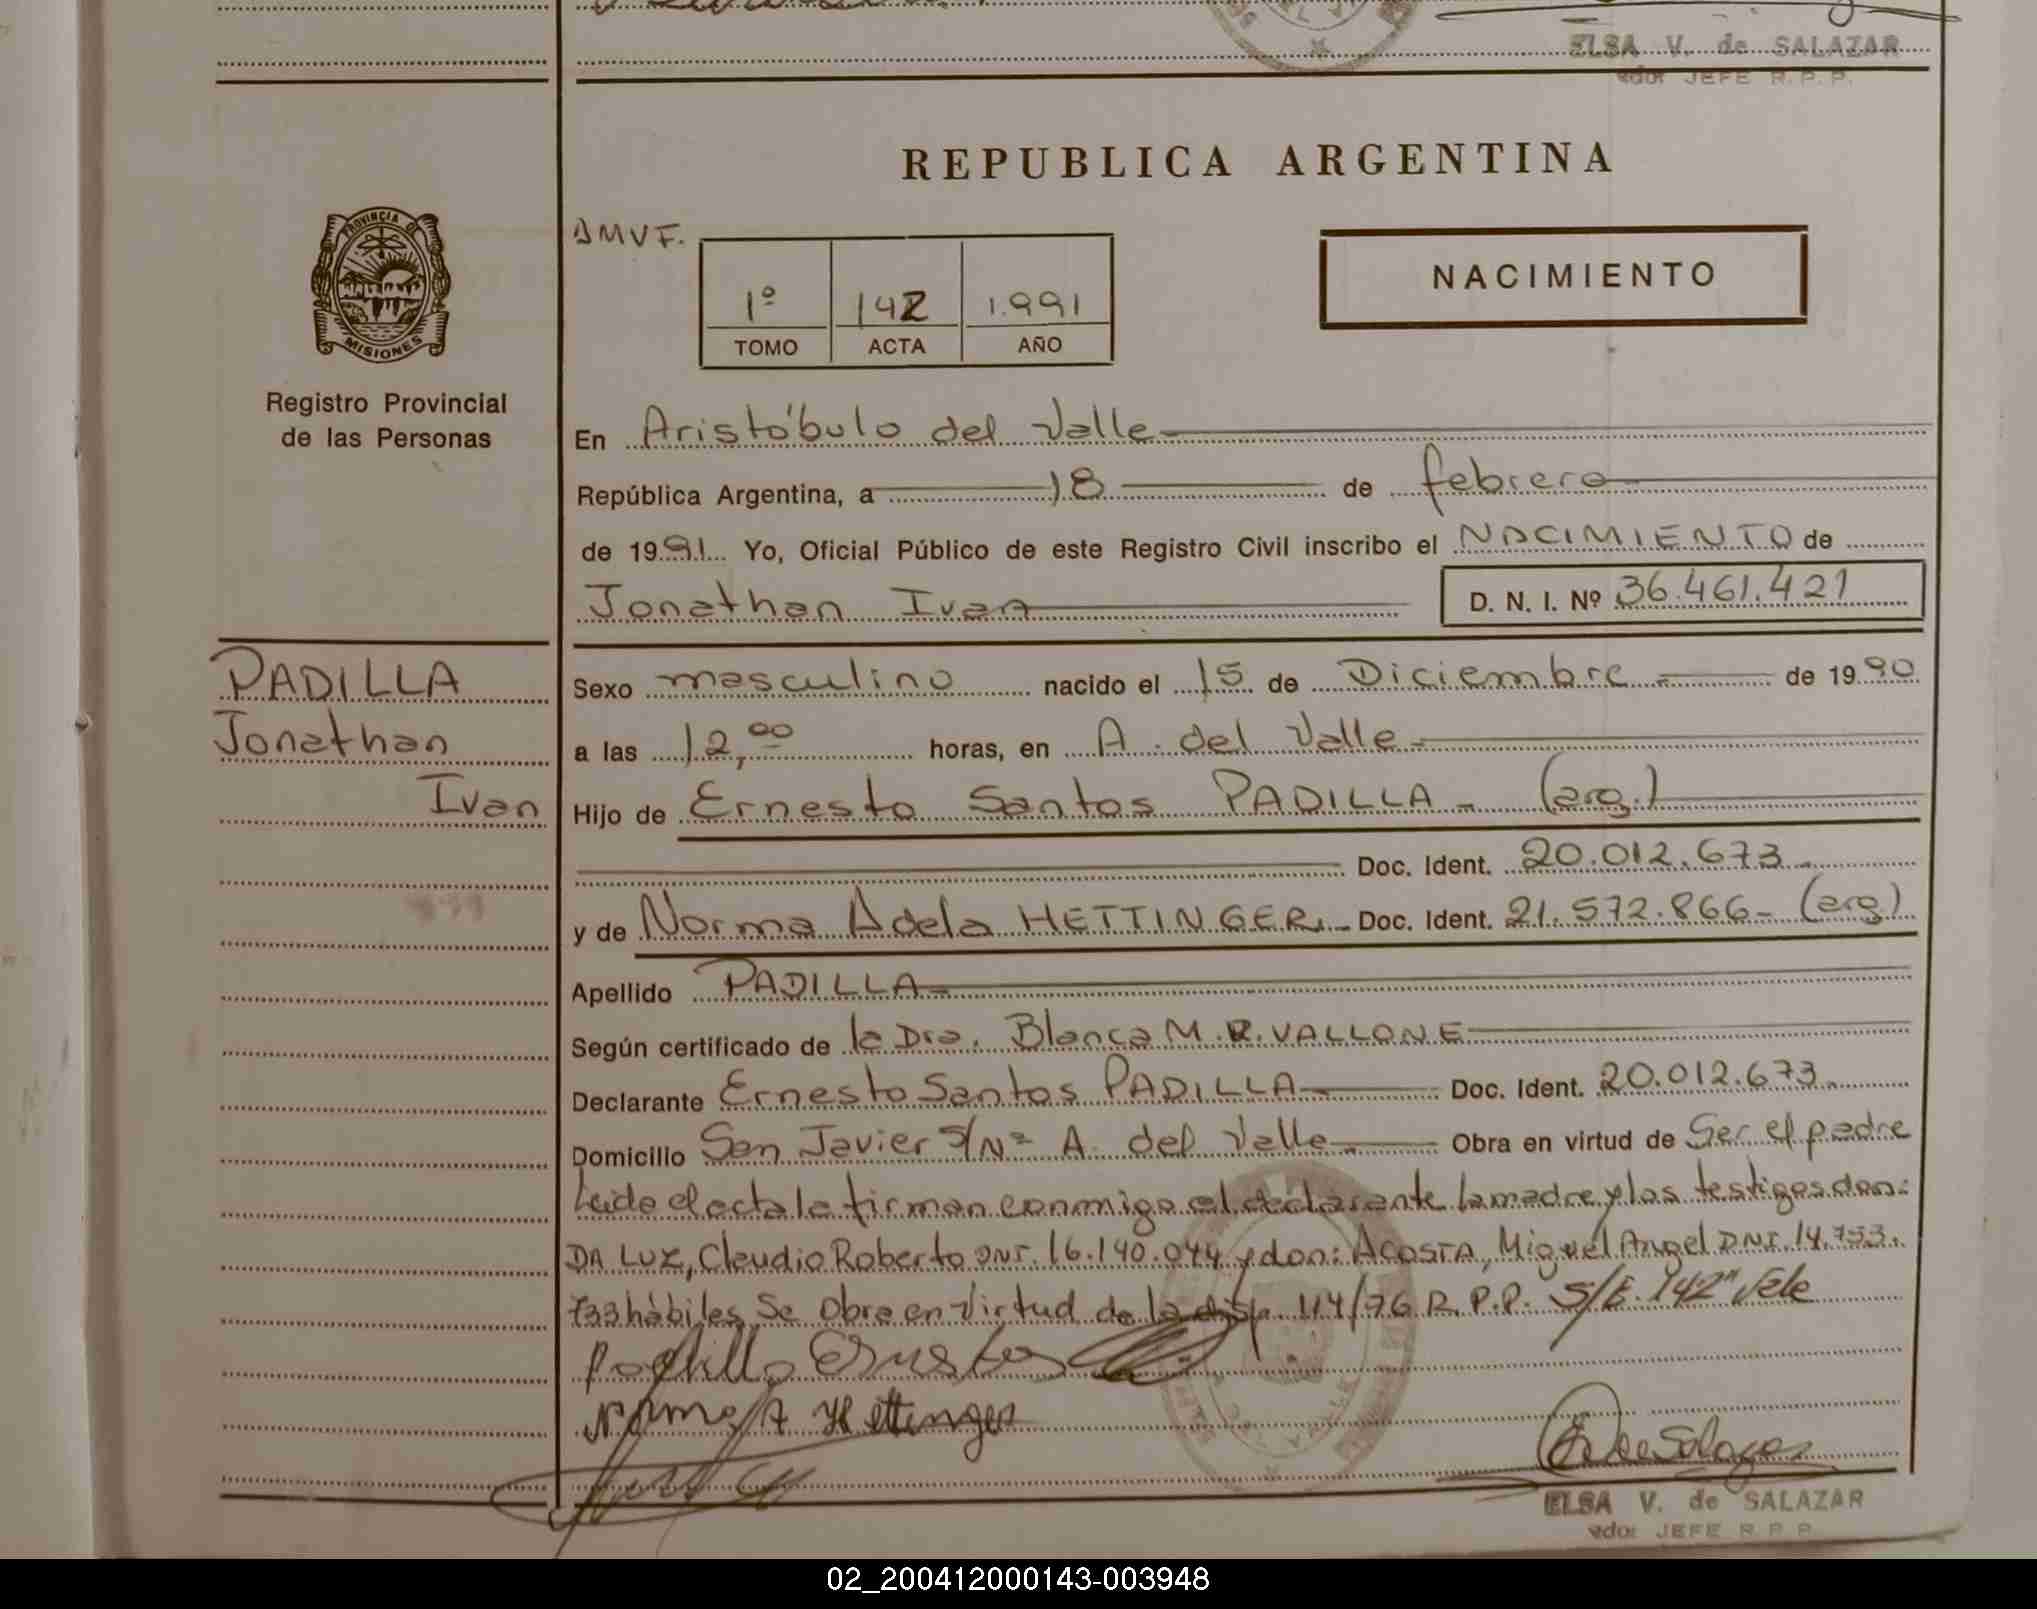 ELSA V. de SALAZAR
JEFE R.P.P.
REPUBLICA ARGENTINA
PROVINCIA DE
MISIONES
Registro Provincial
de las Personas
DMVF.
1º 142 1.991
TOMO ACTA AÑO
NACIMIENTO
En Aristóbulo del Valle
República Argentina, a 18 de febrero
de 1991 Yo, Oficial Público de este Registro Civil inscribo el NACIMIENTO de
Jonathan Ivan D. N. I. Nº 36.461.421
PADILLA
Jonathan
Ivan
Sexo masculino nacido el 15 de Diciembre de 1990
a las 12,00 horas, en A. del Valle
Hijo de Ernesto Santos PADILLA - (arg.)
Doc. Ident. 20.012.673
y de Norma Adela HETTINGER. Doc. Ident. 21.572.866- (arg)
Apellido PADILLA
Según certificado de la Dra. Blanca M.R. VALLONE
Declarante Ernesto Santos PADILLA Doc. Ident. 20.012.673
Domicilio San Javier S/Nº A. del Valle Obra en virtud de Ser el padre
Leida el acta la firman conmigo el declarante la madre y los testigos don:
DA LUZ, Claudio Roberto DNI. 16.140.044 y don: ACOSTA, Miguel Angel DNI. 14.753.
733 hábiles. Se Obra en virtud de la disp. 114/76 R.P.P. S/E. 142" Vale
Padilla Ernesto
Norma A Hettinger
E V de Salazar
ELSA V. de SALAZAR
JEFE R.P.P.
02_200412000143-003948